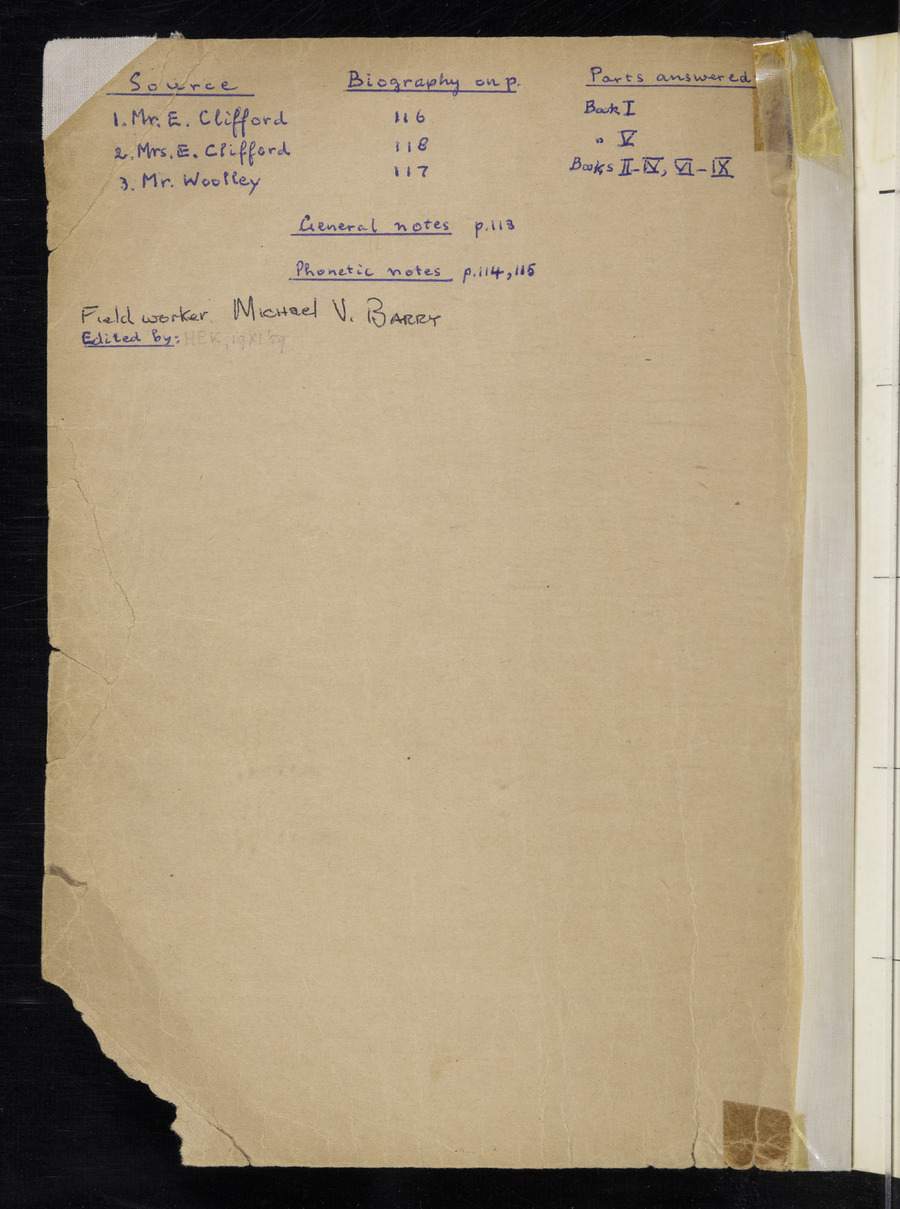 Source Biography on p. Parts answered
1. Mr. E. Clifford 116 Book I
2. Mrs. E. Clifford 118 " V
3. Mr. Woolley 117 Books II-IV, VI-IX
General notes p.113
Phonetic notes p.114, 115
Field worker. Michael V. Barry
Edited by: HEK, 19XI'59